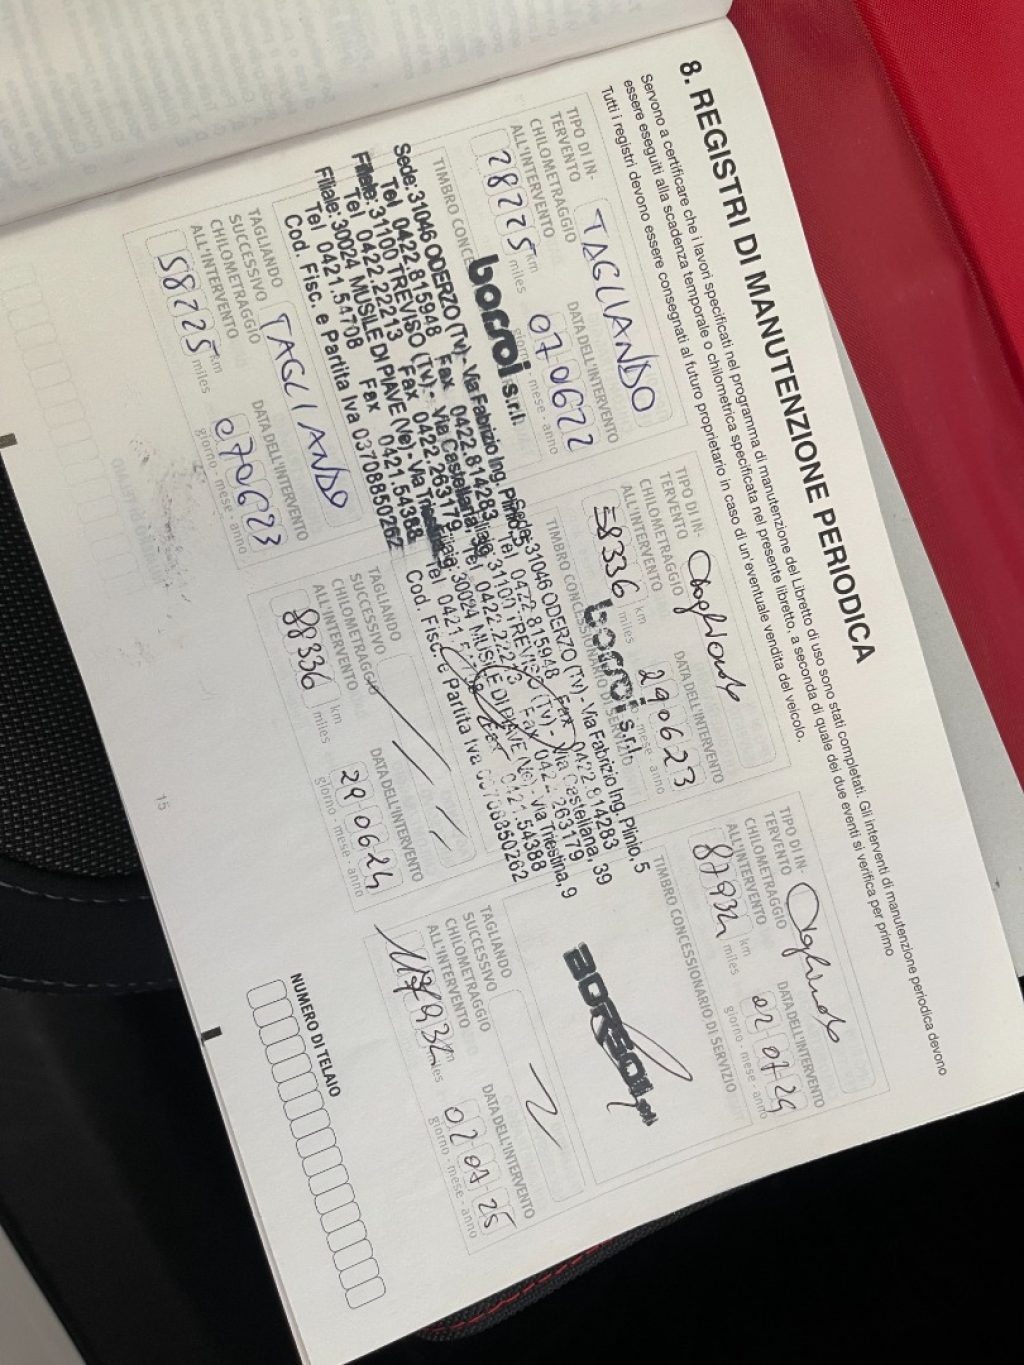 8. REGISTRI DI MANUTENZIONE PERIODICA
Servono a certificare che i lavori specificati nel programma di manutenzione del Libretto di uso sono stati completati. Gli interventi di manutenzione periodica devono
essere eseguiti alla scadenza temporale o chilometrica specificata nel presente libretto, a seconda di quale dei due eventi si verifica per primo
Tutti i registri devono essere consegnati al futuro proprietario in caso di un'eventuale vendita del veicolo.
TIPO DI IN-
TERVENTO
TAGLIANDO
CHILOMETRAGGIO
ALL'INTERVENTO
28225 km
miles
DATA DELL'INTERVENTO
070622
giorno - mese - anno
TIMBRO CONCE
borsoi s.r.l.
Sede: 31046 ODERZO (Tv) - Via Fabrizio Ing. Plinio, 5
Tel 0422.815948 Fax 0422.814283
Filiale: 31100 TREVISO (Tv) - Via Castellana,
Tel 0422.22213 Fax 0422.263179
Filiale: 30024 MUSILE DI PIAVE (Ve) - Via Triestina,
Tel 0421.54708 Fax 0421.54388
Cod. Fisc. e Partita Iva 03708850262
TAGLIANDO
SUCCESSIVO
TAGLIANDO
CHILOMETRAGGIO
ALL'INTERVENTO
58225 km
miles
DATA DELL'INTERVENTO
070623
giorno - mese - anno
TIPO DI IN-
TERVENTO
Tagliando
CHILOMETRAGGIO
ALL'INTERVENTO
58336 km
miles
DATA DELL'INTERVENTO
290623
mese - anno
TIMBRO CONCESSIONARIO DI SERVIZIO
borsoi s.r.l.
Sede: 31046 ODERZO (Tv) - Via Fabrizio Ing. Plinio, 5
Tel 0422.815948 Fax 0422.814283
31100 TREVISO (Tv) - Via Castellana, 39
Tel 0422.22213 Fax 0422.263179
30024 MUSILE DI PIAVE (Ve) - Via Triestina, 9
Tel 0421 Fax 0421.54388
Cod. Fisc. e Partita Iva 03708850262
TAGLIANDO
SUCCESSIVO
CHILOMETRAGGIO
ALL'INTERVENTO
88336 km
miles
DATA DELL'INTERVENTO
29-0624
giorno - mese - anno
TIPO DI IN-
TERVENTO
Tagliando
CHILOMETRAGGIO
ALL'INTERVENTO
87932 km
miles
DATA DELL'INTERVENTO
02 07 24
giorno - mese - anno
TIMBRO CONCESSIONARIO DI SERVIZIO
BORSOI srl
TAGLIANDO
SUCCESSIVO
CHILOMETRAGGIO
ALL'INTERVENTO
117932 km
miles
DATA DELL'INTERVENTO
02 07 25
giorno - mese - anno
NUMERO DI TELAIO
15